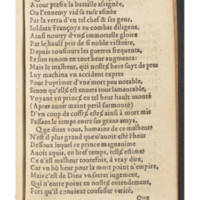 A iour presé la bataille assignée,
Où l'ennemy vid sa ruse asinée
Par la vertu d'vn tel chef & ses gens,
Soldats Françoys au combat diligens.
Ainsi nourry d'vn immortelle gloire
Par le hault pris de si noble victoire,
Depuis tousiours les guerres frequenta,
Et son renom en honneur augmenta:
Mais le malheur, qui nostre heur
Luy machina vn accident expres
Pour l'oprimer d'vne mort peu notable,
Sinon qu'elle est enuers tous lamentable,
Voyant vn prince en tel heur hault monté
(Apres auoir maint peril surmonté)
D'vn coup de coffre estre ainsi à mort mis
Passant le temps entre ses grans amys.
Que dites vous, humains de ce malheur
N'est il plus grand que auoit esté l'heur
Dessous lequel ce prince magnanime
Auoit aquis, en bref temps, telle estime
Ce n'est malheur toutefois, à vray dire,
Car vn bõ heur pour la mort point n'empire,
Mais c'est de Dieu vn destin vrgent,
Qui n'entre point en nostre entendement,
Fors qu'il est conduit à son vouloir,
Que